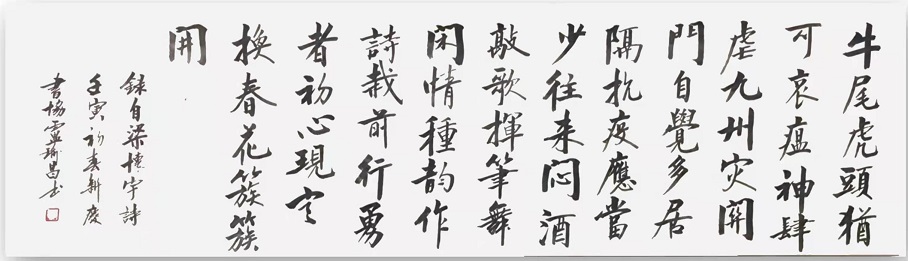 牛尾虎頭猶
可哀瘟神肆
虐九州灾關
門自覺多居
隔抗疫應當
少往来悶酒
敲歌揮筆舞
閑情種韵作
詩栽前行勇
者初心現定
換春花簇簇
開
録自梁懷宇詩
壬寅初春
書協昌书